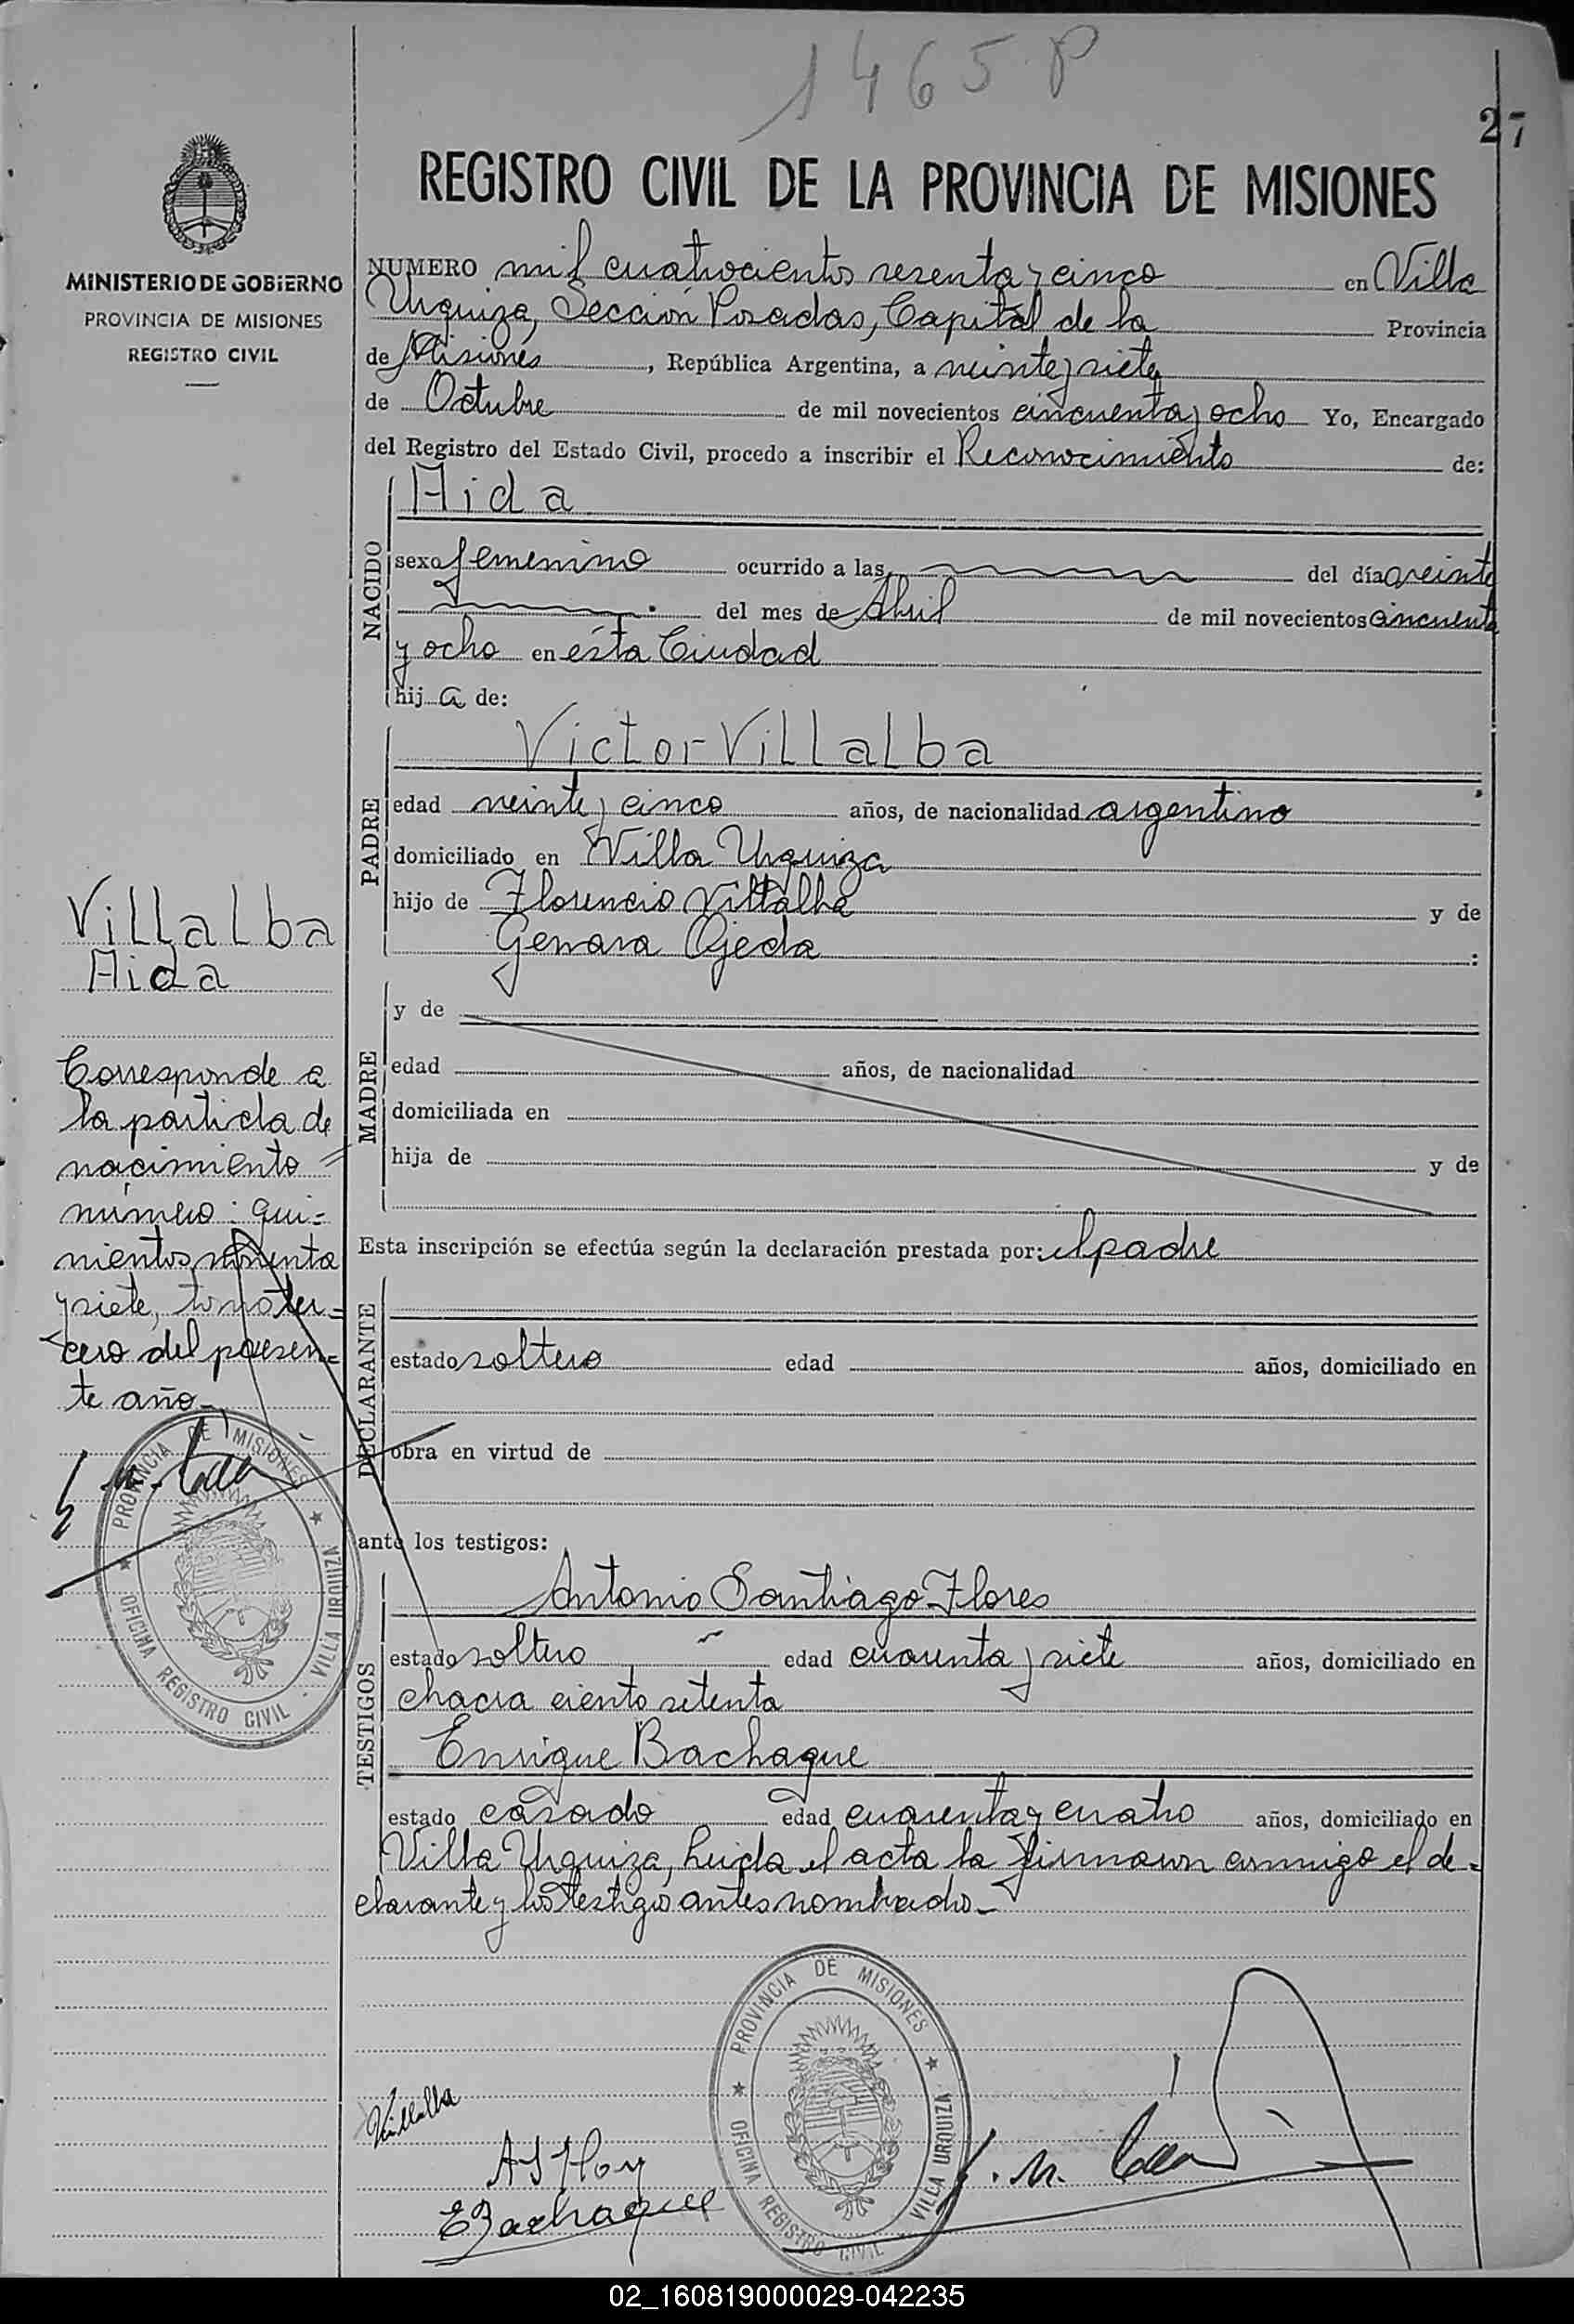 1465 P
27
MINISTERIO DE GOBIERNO
PROVINCIA DE MISIONES
REGISTRO CIVIL
REGISTRO CIVIL DE LA PROVINCIA DE MISIONES
NUMERO mil cuatrocientos sesenta y cinco en Villa
Urquiza, Sección Posadas, Capital de la Provincia
de Misiones, República Argentina, a veinte y siete
de Octubre de mil novecientos cincuenta y ocho Yo, Encargado
del Registro del Estado Civil, procedo a inscribir el Reconocimiento de:
NACIDO
Aida
sexo femenino ocurrido a las del día veinte
del mes de Abril de mil novecientos cincuenta
y ocho en ésta Ciudad
hij a de:
PADRE
Victor Villalba
edad veinte y cinco años, de nacionalidad argentino
domiciliado en Villa Urquiza
hijo de Florencio Villalba y de
Genara Ojeda :
MADRE
y de
edad años, de nacionalidad
domiciliada en
hija de y de
Villalba
Aida
Corresponde a
la partida de
nacimiento =
número: qui=
nientos noventa
y siete, tomo ter=
cero del presen=
te año-
PROVINCIA DE MISIONES
OFICINA REGISTRO CIVIL - VILLA URQUIZA
Esta inscripción se efectúa según la declaración prestada por: el padre
DECLARANTE
estado soltero edad años, domiciliado en
obra en virtud de
ante los testigos:
TESTIGOS
Antonio Santiago Flores
estado soltero edad cuarenta y siete años, domiciliado en
chacra ciento setenta
Enrique Bachaque
estado casado edad cuarenta y cuatro años, domiciliado en
Villa Urquiza, leida el acta la firmaron conmigo el de=
clarante y los testigos antes nombrado-
PROVINCIA DE MISIONES
OFICINA REGISTRO CIVIL VILLA URQUIZA
Villalba
EBachaque
02_160819000029-042235